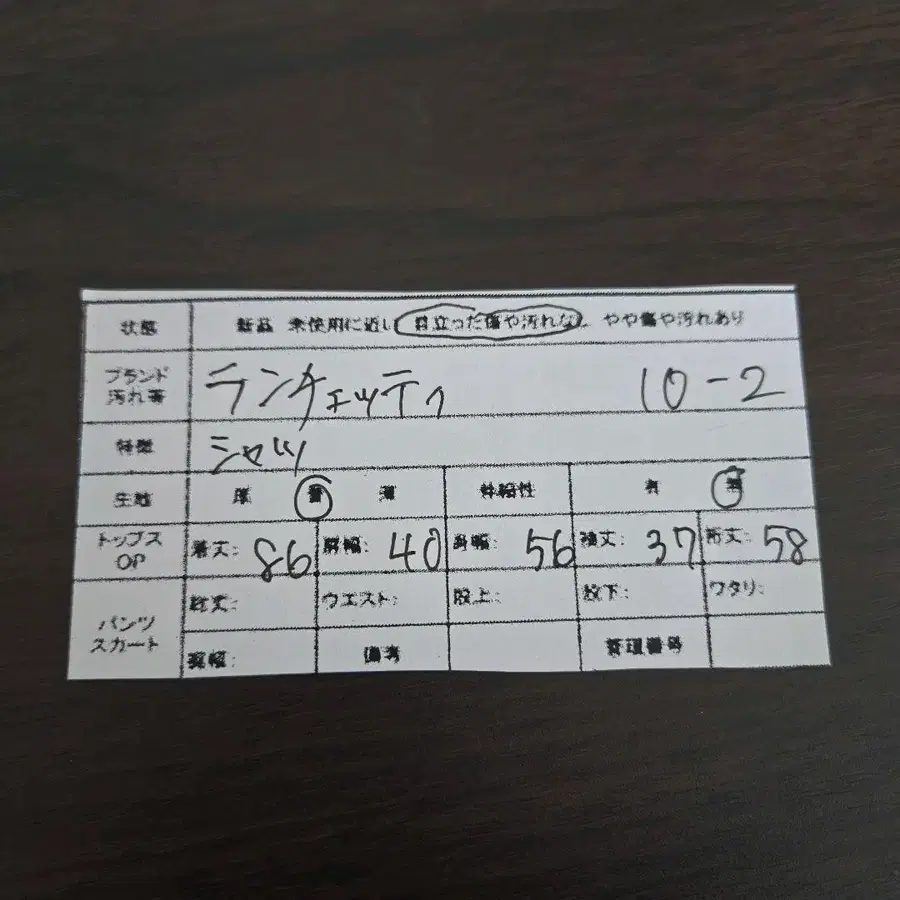 状態 新品 未使用に近い 目立った傷や汚れなし やや傷や汚れあり
ブランド 汚れ等 ランチェッティ 10-2
特徴 シャツ
生地 厚 普 薄 伸縮性 有 無
トップス OP 着丈: 86 肩幅: 40 身幅: 56 袖丈: 37 裄丈: 58
パンツ スカート 総丈: ウエスト: 股上: 股下: ワタリ:
裾幅: 備考 管理番号